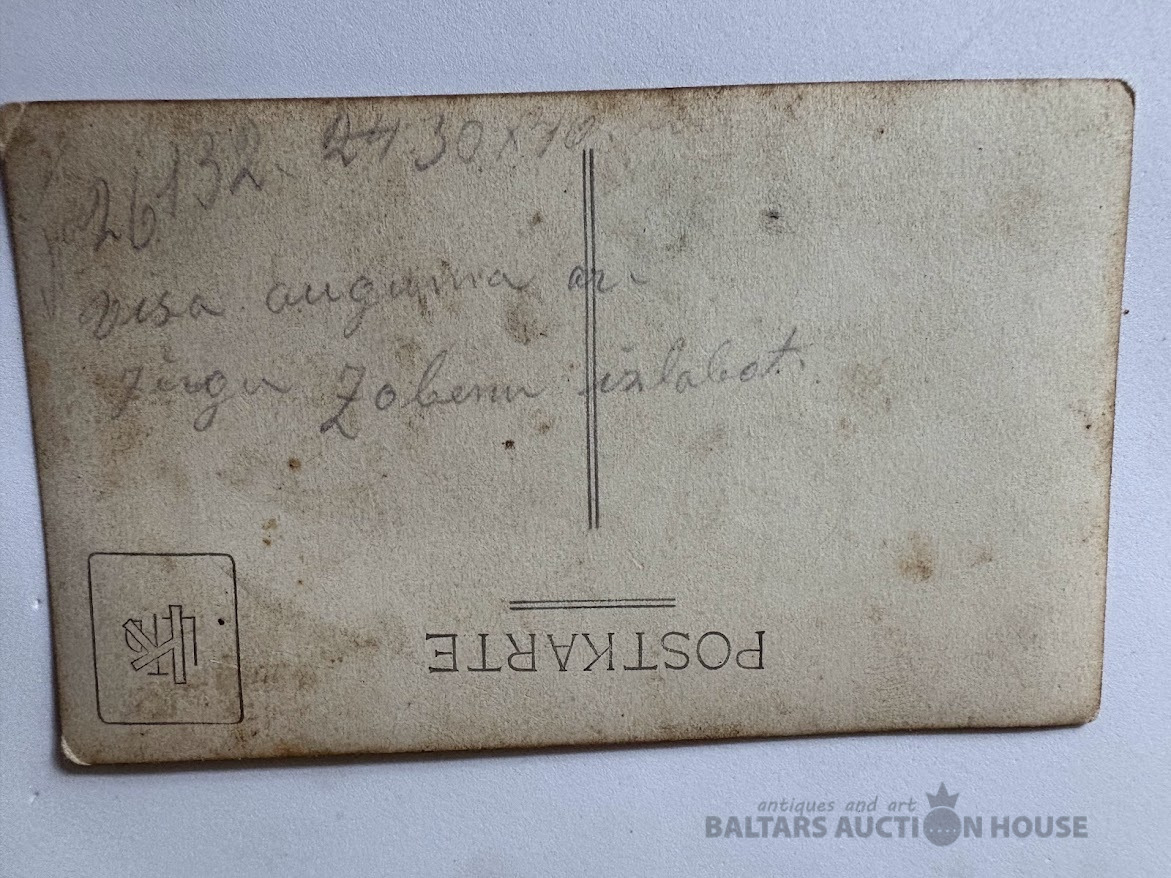 26132. 24 30x40
visa auguma ar
Zirgu Zobenu izlabot.
POSTKARTE
antiques and art
BALTARS AUCTION HOUSE